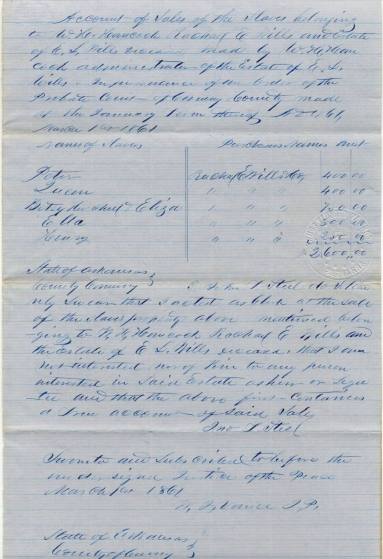 Account of Sales of the Slaves belonging
to W. H. Hancock Rachael E Wills and Estate
of E. S. Wills deceased made by W. H. Han
cock administrator of the Estate of E. S.
Wills in pursuance of the Order of the
Probate Court of Conway County made
at the January Term thereof
March 1st 1861
Names of Slaves Purchasers Names amt
Peter Rachael E Wills 400.00
" " " 400.00
Betsy & child Eliza " " "
Ella " " "
Henry " " "
2,600.00
State of Arkansas
County Conway I John I Steel do
that I acted as Clerk at the sale
of the Slave property above mentioned belon
ging to W. H. Hancock Rachael E Wills and
the Estate of E. S. Wills deceased that I am
not interested nor of Kin to any person
interested in Said Estate as heir or Lega
tee and that the above contains
a true account of Said Sales
Jno I Steel
Sworn to and Subscribed to before the
undersigned Justice of the Peace
March 1861
J.P.
State of Arkansas
County of Conway